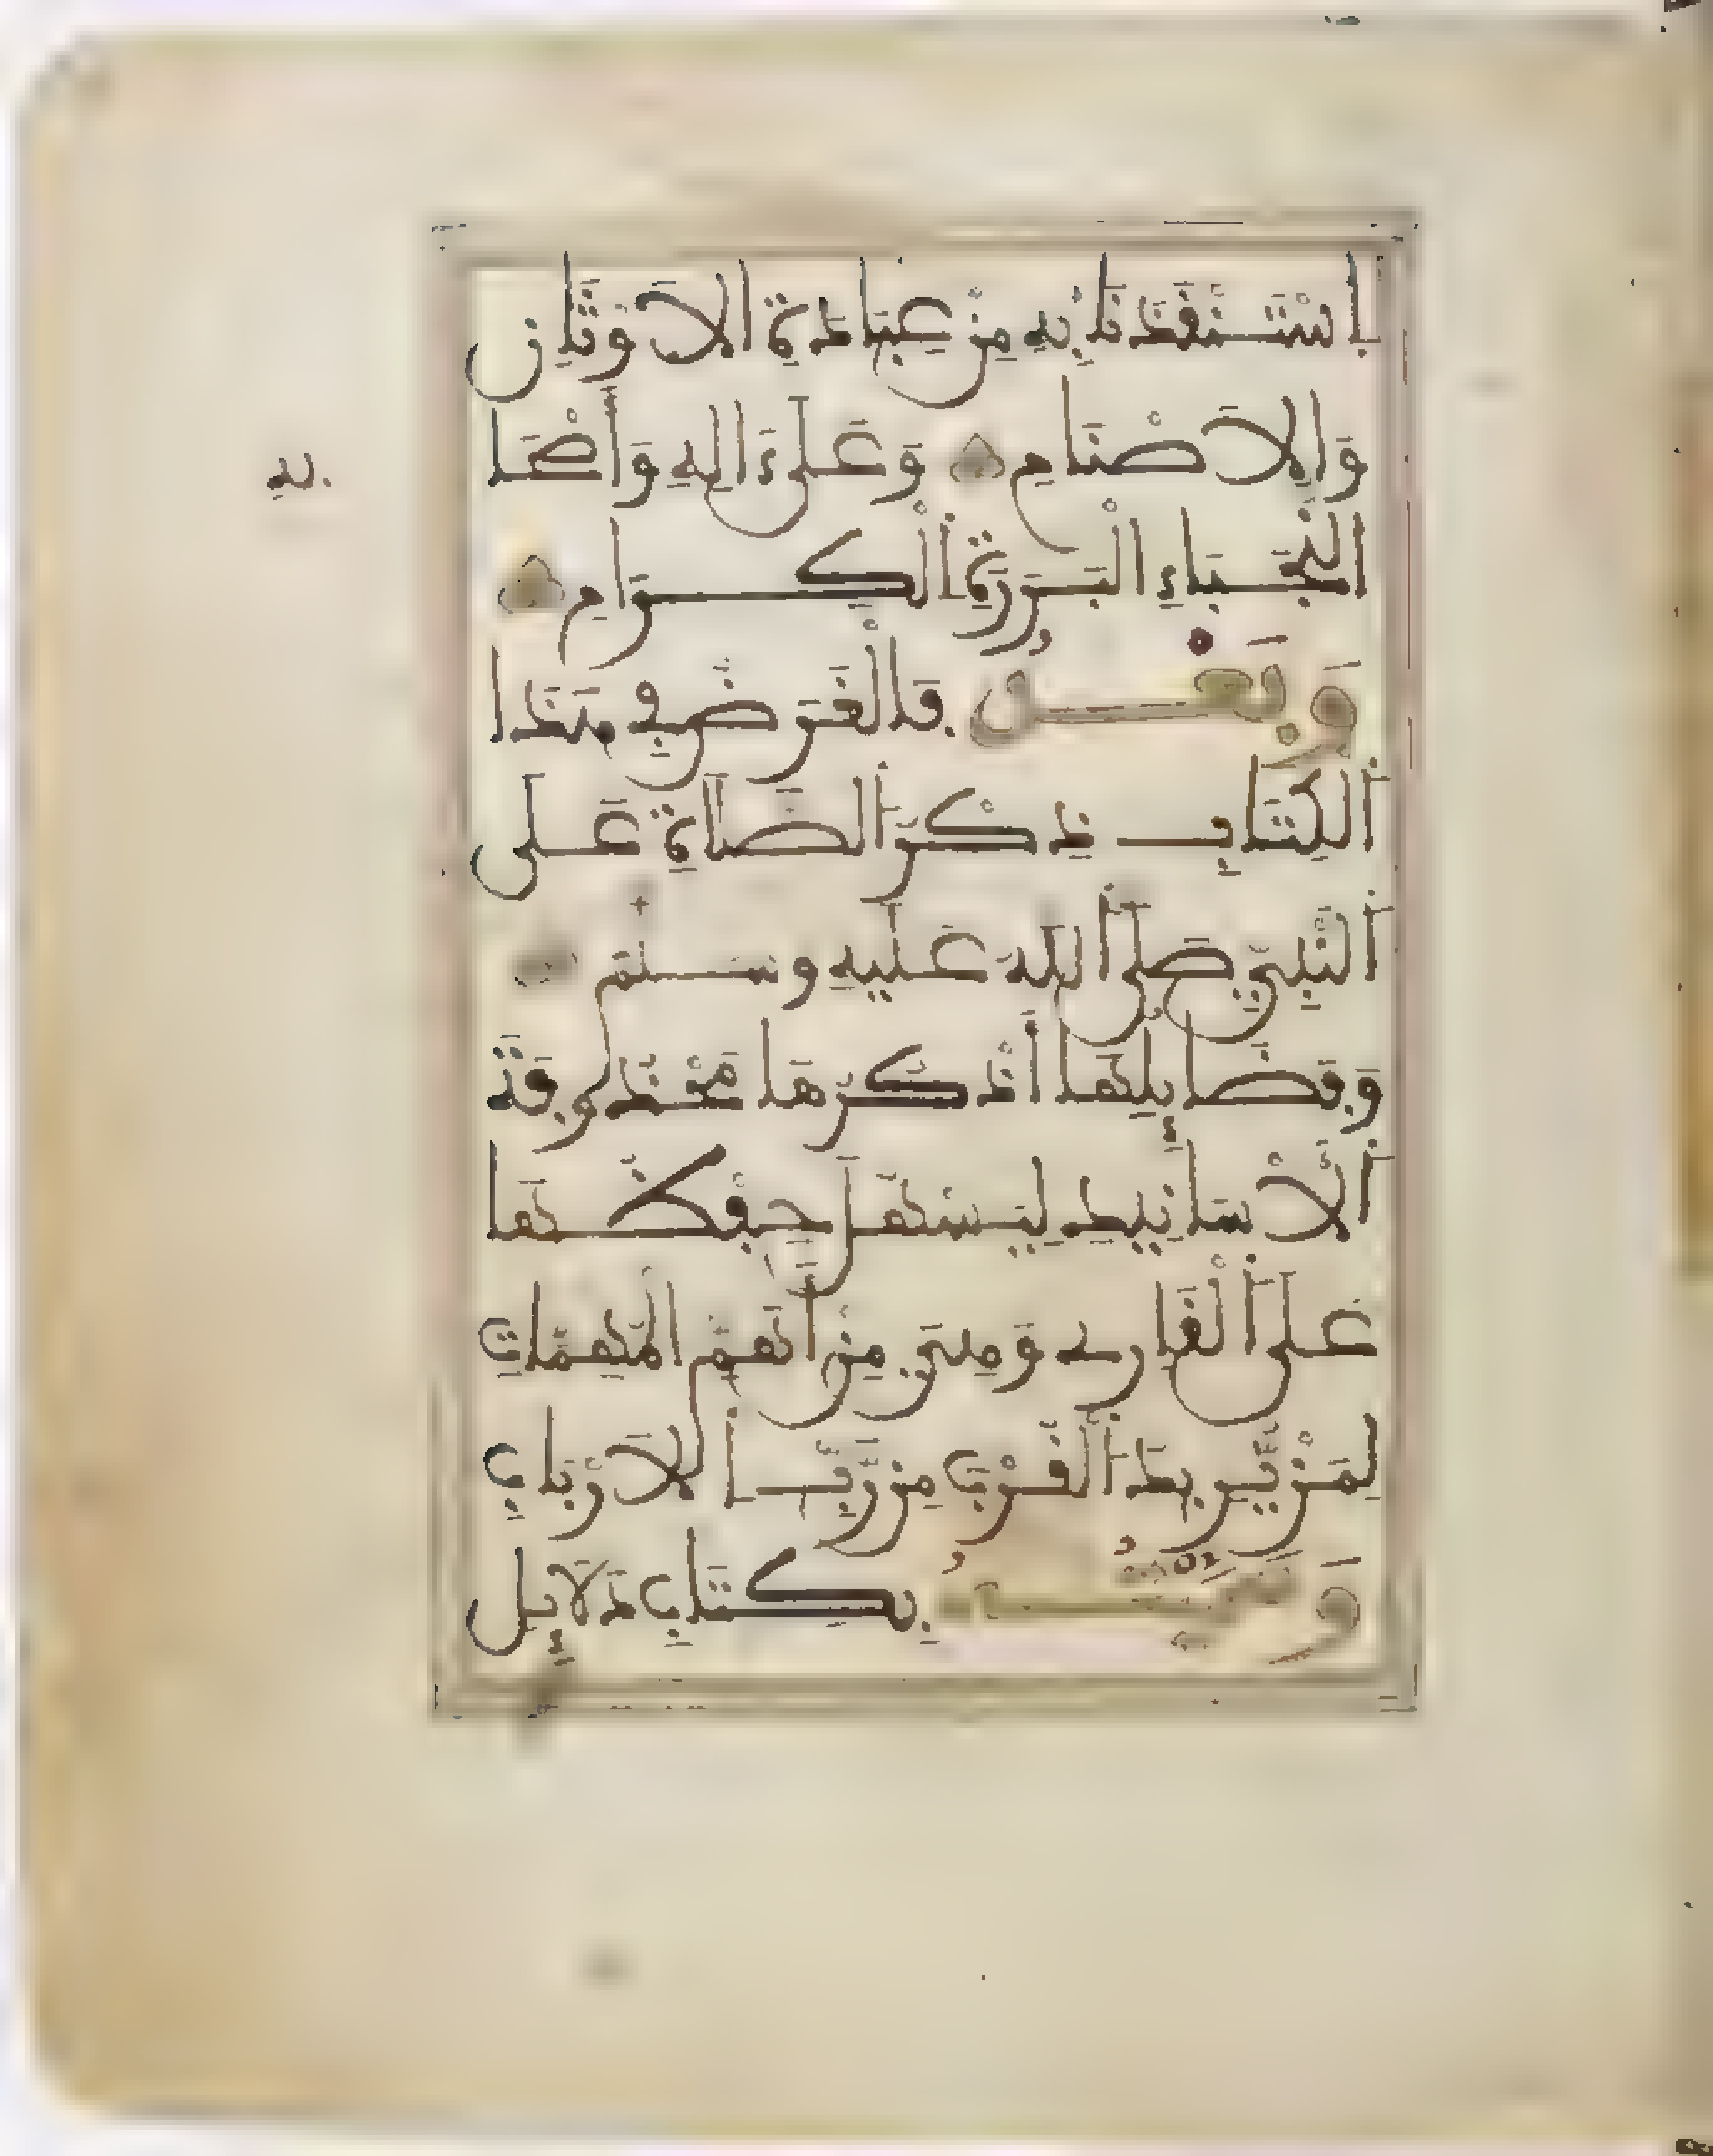 اِسْتَنْقَذَنَا بِهِ مِنْ عِبَادَةِ الَاوْثَانِ
وَالَاصْنَامِ وَعَلَىٰ ءَالِهِ وَأَصْحَابِهِ
النُّجَبَاءِ الْبَرَرَةِ الْكِرَامِ
وَبَعْدُ فَالْغَرَضُ فِي هَٰذَا
الْكِتَابِ ذِكْرُ الصَّلَاةِ عَلَى
النَّبِيِّ صَلَّى اللَّهُ عَلَيْهِ وَسَلَّمَ
وَفَضَائِلِهَا أَذْكُرُهَا مَحْذُوفَةَ
الْأَسَانِيدِ لِيَسْهُلَ حِفْظُهَا
عَلَى الْقَارِئِ وَهِيَ مِنْ أَهَمِّ الْمُهِمَّاتِ
لِمَنْ يُّرِيدُ الْقُرْبَ مِن رَّبِّ الَارْبَابِ
وَسَمَّيْتُهُ بِكِتَابِ دَلَائِلِ